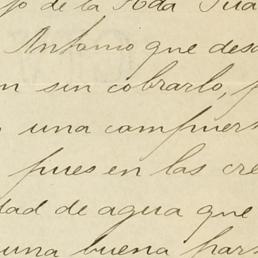 jo de la Hda Jua
Antonio que desc
n sin cobrarlo, p
una compuer
pues en las cre
dad de agua que
una buena par